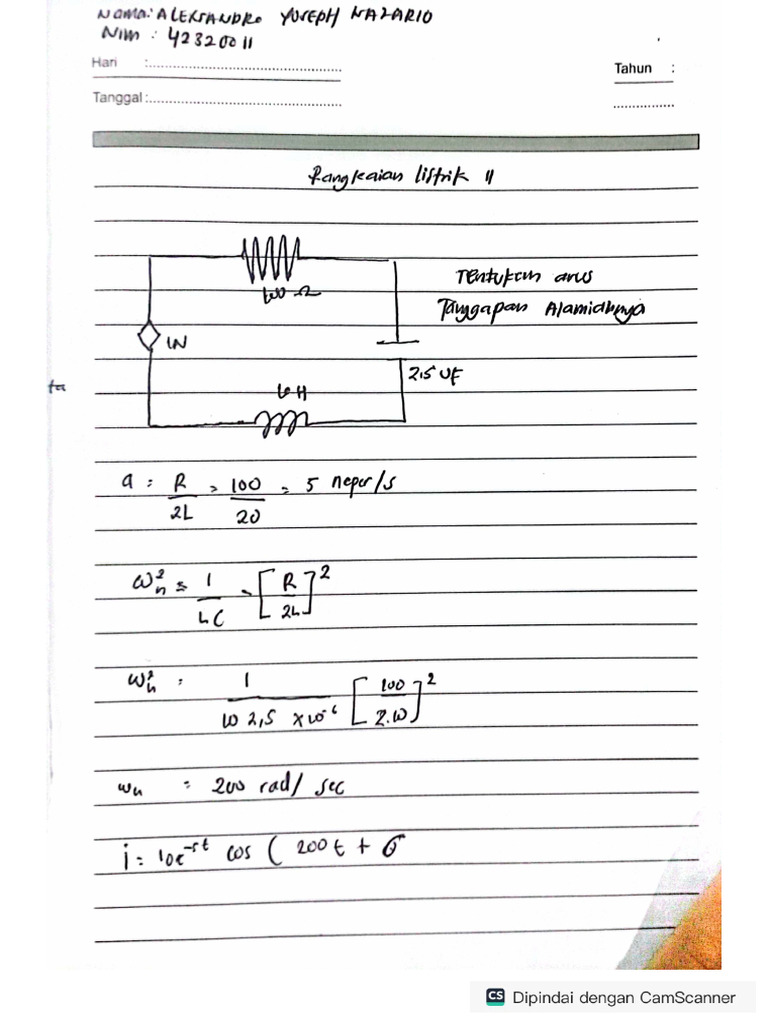 Nama: ALEKSANDRO YOSEPH NAZARIO
NIM : 42320011
Hari :
Tahun :
Tanggal :
Rangkaian listrik II
100 Ω
Tentukan arus
Tanggapan Alamiahnya
IN
2,5 UF
10 H
a = R/2L = 100/20 = 5 neper/s
ω²n = 1/LC - [R/2L]²
ω²n = 1/10 2,5 x 10⁻⁶ [100/2.10]²
ωn = 200 rad/sec
i = 10e⁻⁵ᵗ cos ( 200t + σ
CS Dipindai dengan CamScanner